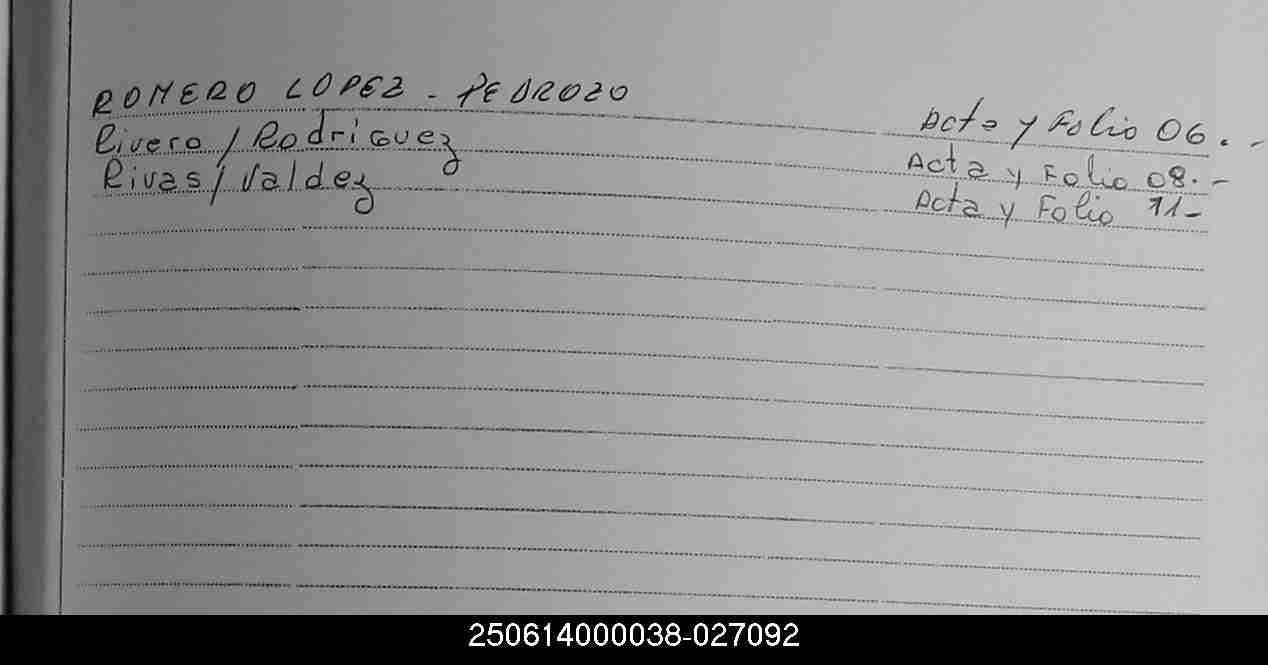 ROMERO LOPEZ - PEDROZO Acta y Folio 06.-
Rivero / Rodriguez Acta y Folio 08.-
Rivas / Valdez Acta y Folio 11-
250614000038-027092